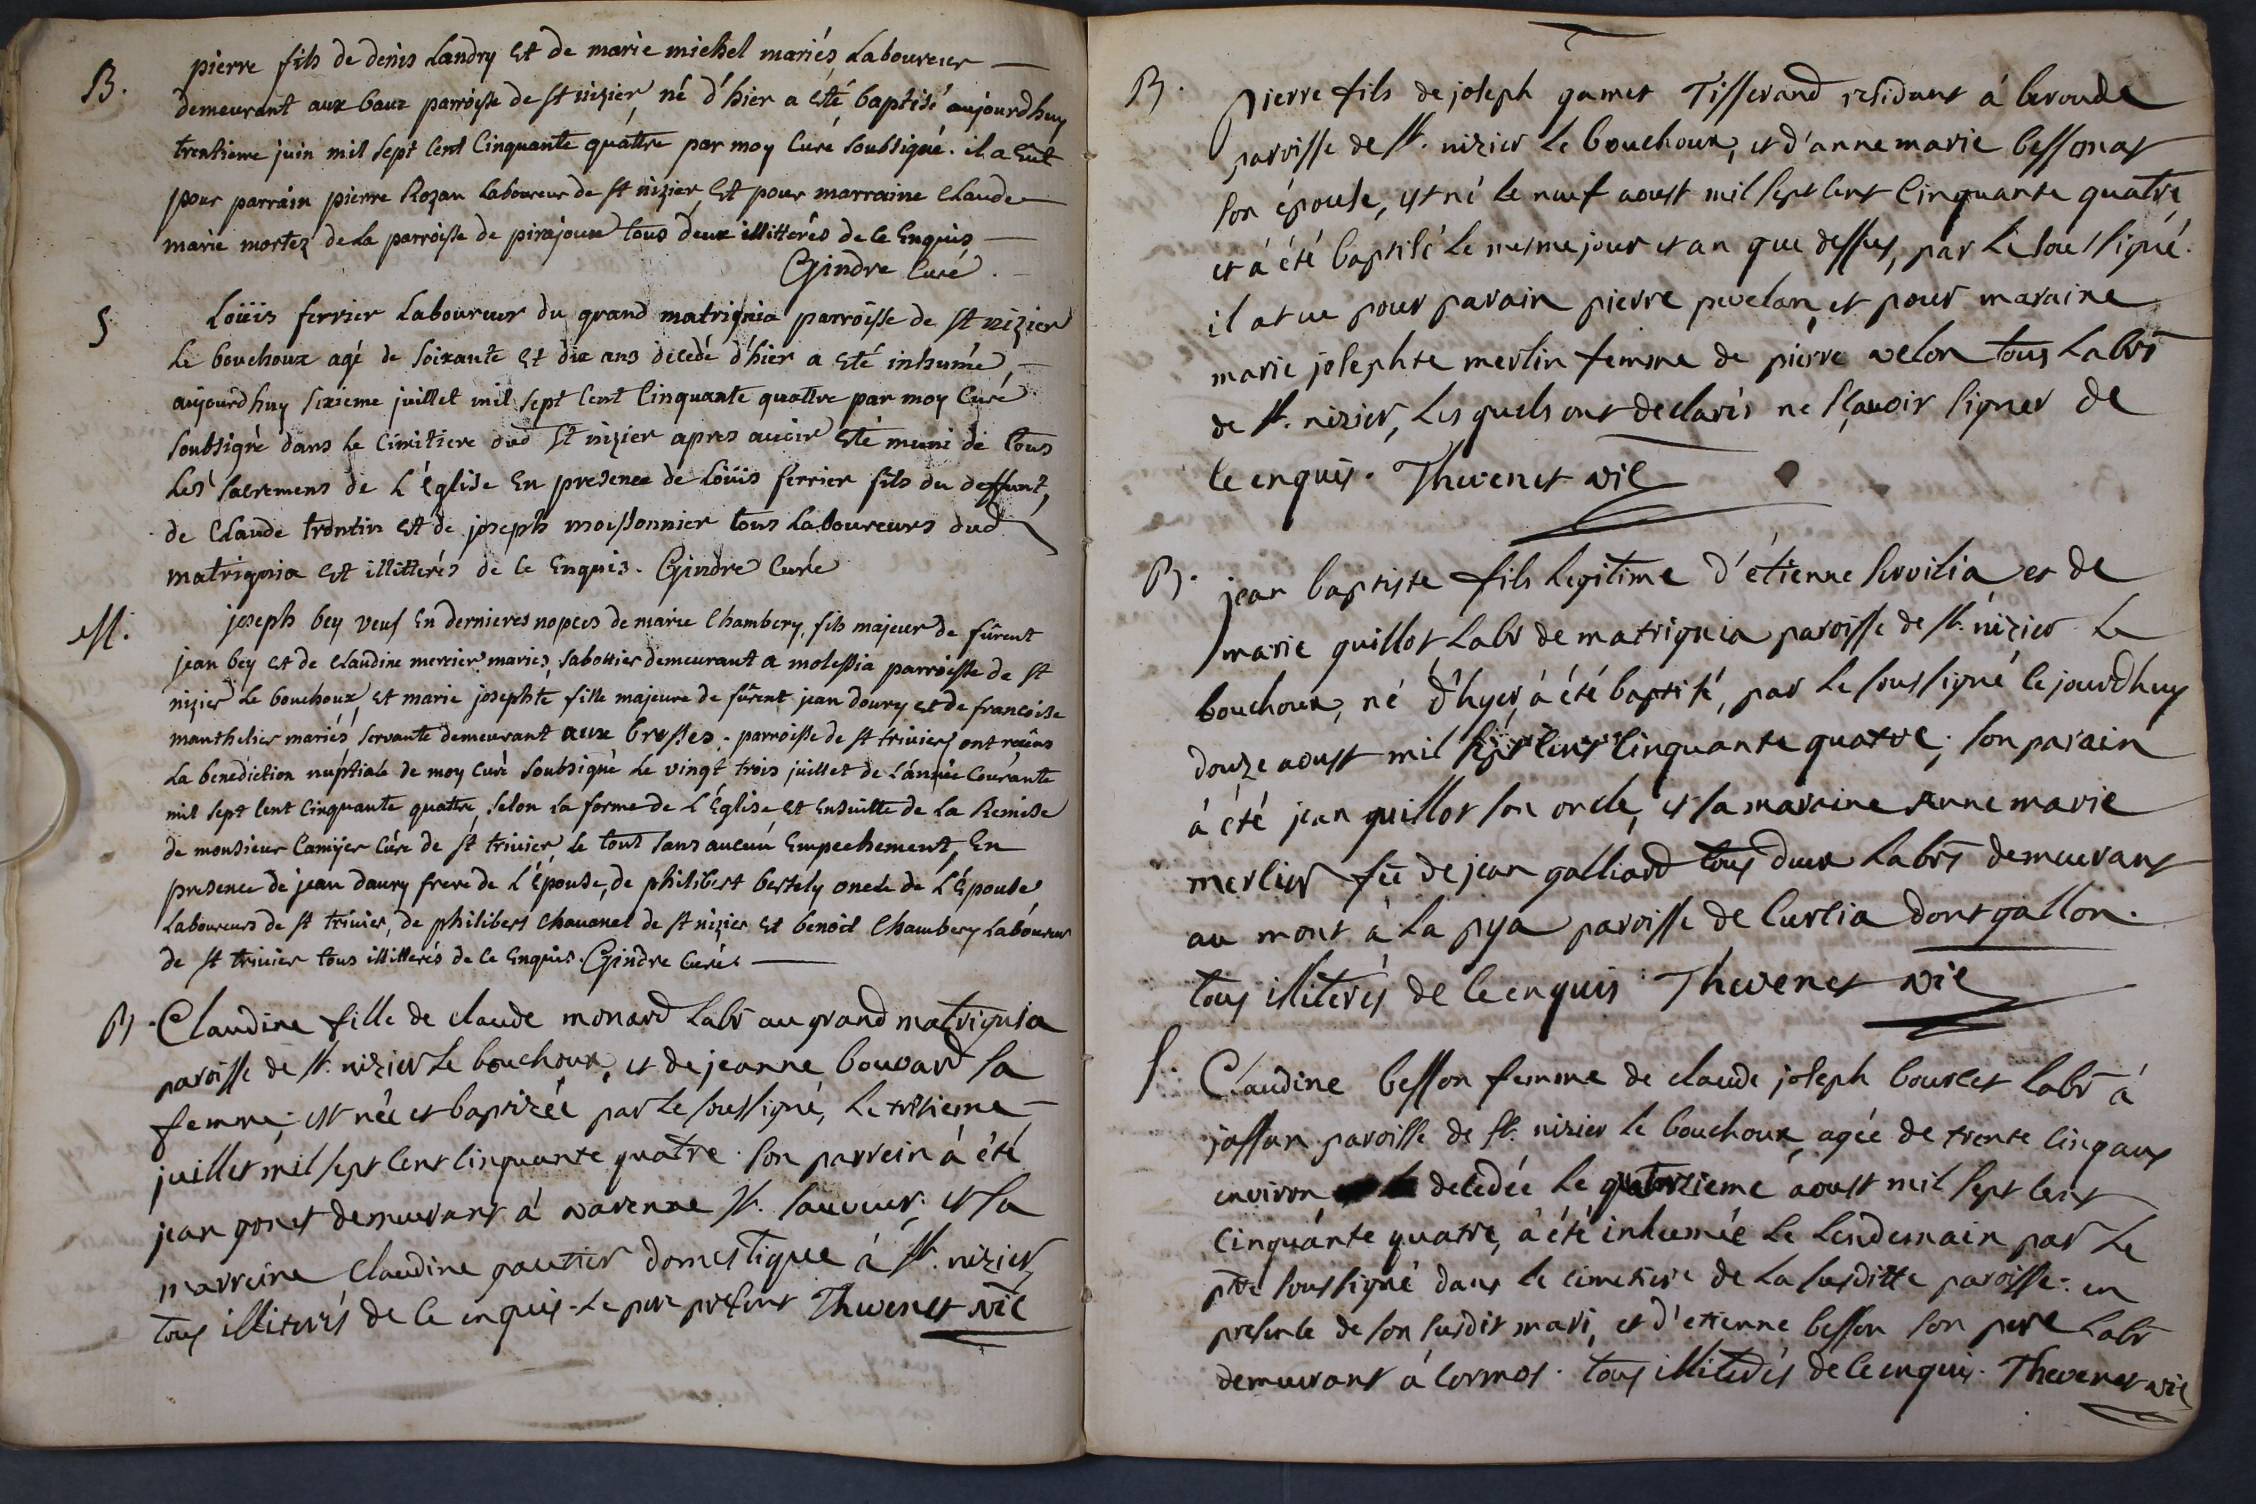 B. pierre fils de denis Landry Et de marie michel mariés Laboureur
demeurant aux baux parroisse de st nizier né d'hier a Eté baptisé aujourdhuy
trentieme juin mil sept Cent Cinquante quattre par moy Curé soubsigné. il a Eut
pour parrain pierre Rozan Laboureur de st nizier Et pour marraine Claude
marie mortez de La parroisse de pirajoux tous deux illitterés de ce Enquis
Gindre Curé.
S Loüis ferrier Laboureur du grand matrignia parroisse de st nizier
Le bouchoux agé de soixante Et dix ans decedé d'hier a Eté inhumé,
aujourd'huy sixieme juillet mil sept Cent Cinquante quattre par moy Curé
soubsigné dans Le Cimitiere dud st nizier apres avoir Eté muni de tous
Les sacremens de L'église En presence de Loüis ferrier fils du deffunt,
de Claude trontin Et de joseph moissonnier tous Laboureurs dud
matrignia Et illitterés de ce Enquis. Gindre Curé
M. joseph bey veuf En dernieres nopces de marie Chambery, fils majeur de fûrent
jean bey et de Claudine merrier mariés, sabottier demeurant a molessia parroisse de st
nizier Le bouchoux Et marie josephte fille majeure de fûrent jean doury et de francoise
manthelier mariés, servante demeurant aux brosses, parroisse de st trivier ont reçus
La benediction nuptiale de moy Curé soubsigné Le vingt trois juillet de L'année Courante
mil sept Cent Cinquante quattre, selon La forme de L'Église Et Ensuitte de La Remise
de monsieur Camyer Cûre de st trivier Le tout sans aucun Empechement, En
presence de jean daury frere de L'Épouse, de philibert bertely oncle de L'Épouse
Laboureurs de st trivier, de philibert Chavanel de st nizier Et benoit Chambery Laboureur
de st trivier tous illitterés de ce Enquis. Gindre Curé.
B. Claudine fille de claude monard Labr au grand matrignia
paroisse de st. nizier Le bouchoux, et de jeanne bouvard sa
femme, est née et baptizée par Le soussigné, Le
juillet mil sept cent cinquante quatre. son parrein à été
jean gonet demeurant à varenne st. sauveur, et sa
marreine Claudine gautier domestique à st. nizier
tous illiterés de ce enquis. Le pere present Thevenet vic
B. Pierre fils de joseph gamet Tisserand residant à beroude
paroisse de st. nizier Le bouchoux, et d'anne marie bessonat
son épouse, est né Le neuf aoust mil sept cent Cinquante quatre,
et à été baptisé Le mesme jour et an que dessus, par Le soussigné.
il at eu pour parain pierre et pour maraine
marie josephte merlin femme de pierre velon tous Labrs
de st. nizier, Les quels ont declarés ne sçavoir signer de
ce enquis. Thevenet vic
B. jean baptiste fils Legitime d'étienne servilia et de
marie guillot Labr de matrignia paroisse de st. nizier Le
bouchoux, né d'hyer, à été baptisé, par Le soussigné cejourdhuy
douze aoust mil sept cent cinquante quatre; son parain
à été jean guillot son oncle, et sa maraine Anne marie
merlier fee de jean galliard tous deux Labrs demeurant
au mont à La pya paroisse de Curtia
tous illiterés de ce enquis Thevenet vic
S. Claudine besson femme de claude joseph bourcet Labr à
jassan paroisse de st. nizier Le bouchoux, agée de trente cinq ans
environ decedée Le quatorzieme aoust mil sept cent
Cinquante quatre, à été inhumée Le Lendemain par Le
ptre soussigné dans Le cimetiere de La susditte paroisse. en
presence de son susdit mari, et d'etienne besson son pere Labr
demeurant à Cormos. tous illiterés de ce enquis. Thevenet vic